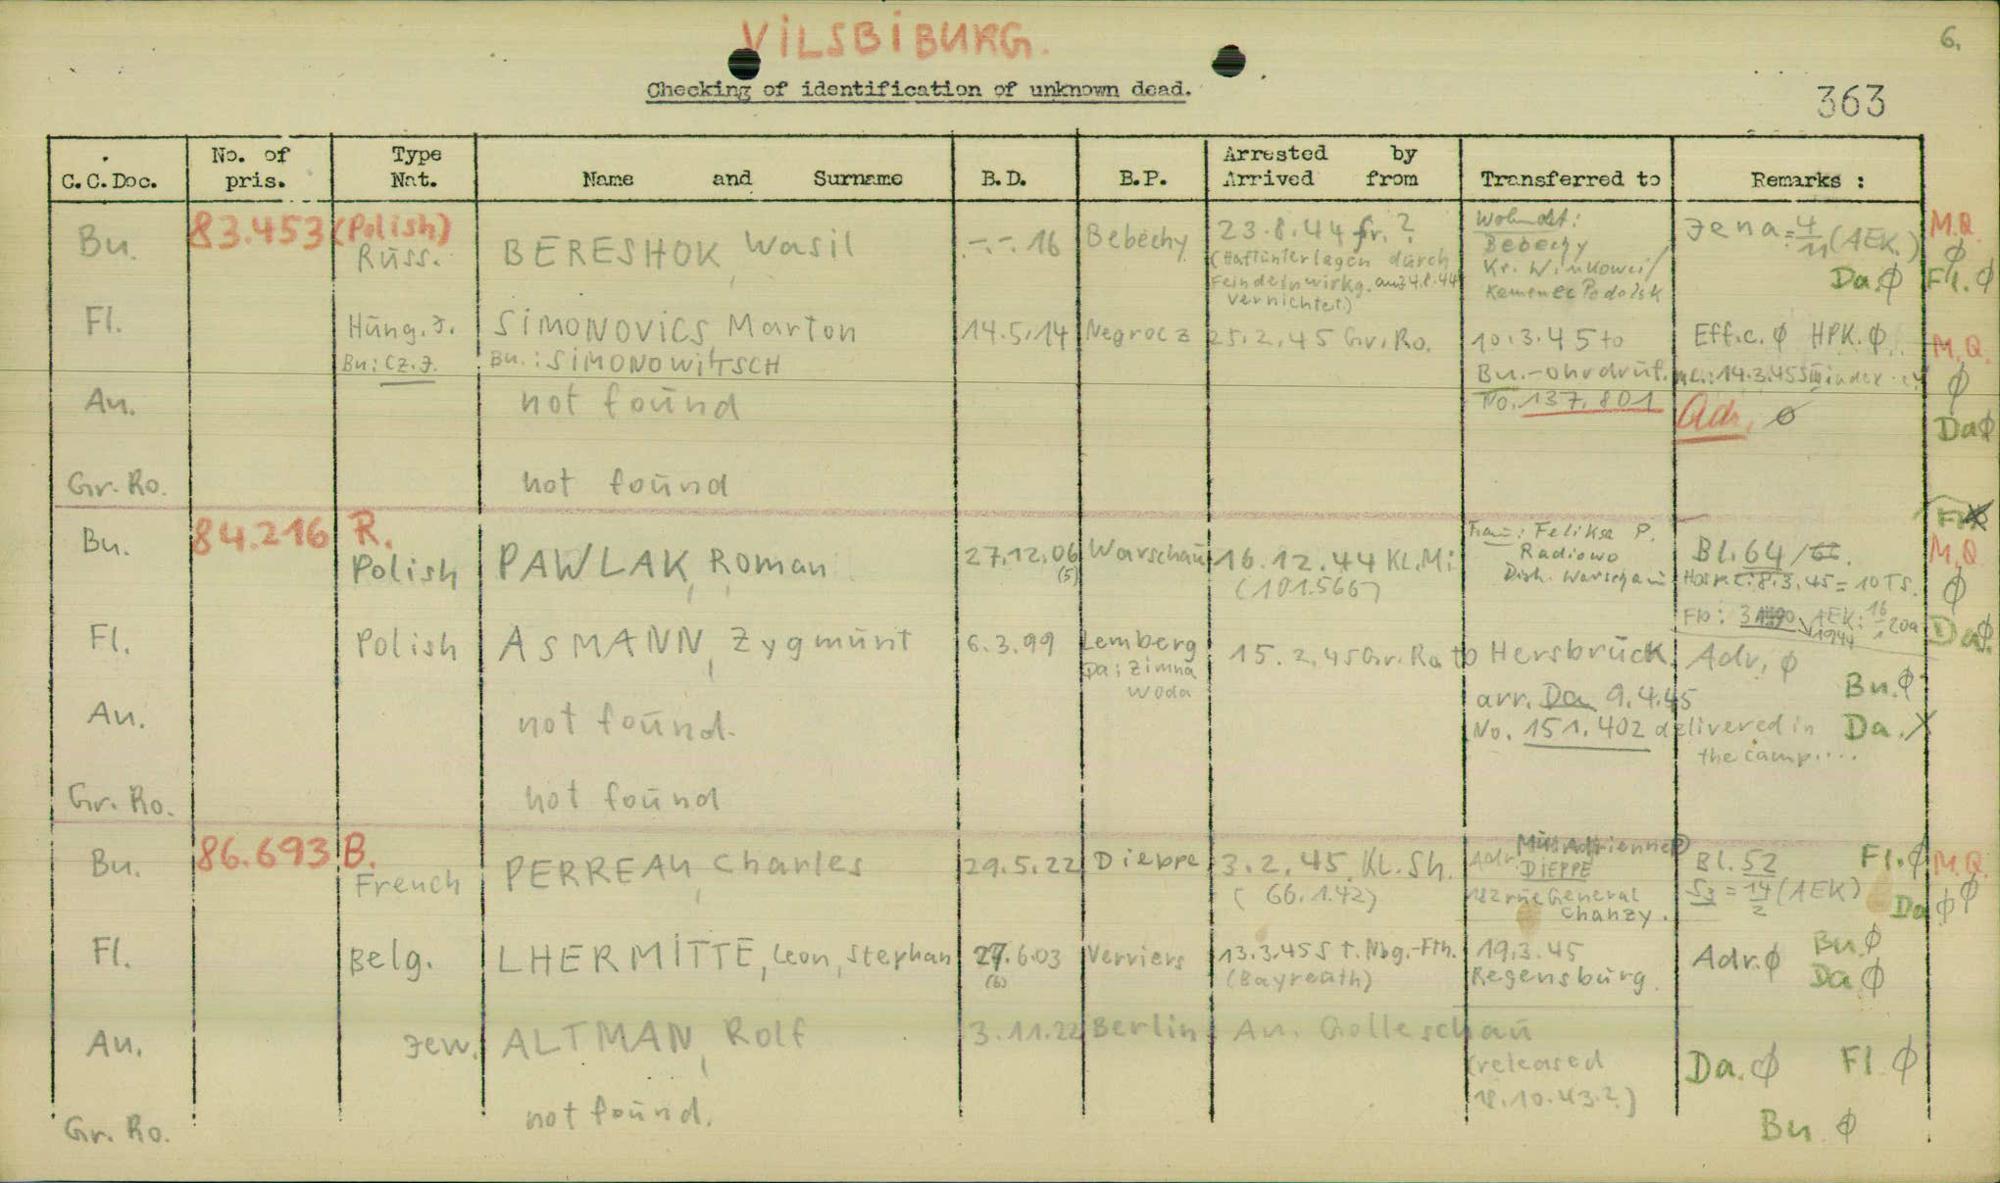 VILSBIBURG.
6.
Checking of identification of unknown dead.
363
C.C.Doc. No. of pris. Type Nat. Name and Surname B.D. B.P. Arrested by Arrived from Transferred to Remarks :
Bu. 83.453 (Polish) Russ. BERESHOK, Wasil -.-.16 Bebechy 23.8.44 fr. ? Jena = 4/11 (AEK.) M.Q. Ø
(Haftunterlagen durch
Feindeinwirkg. am 24.8.44
vernichtet)
Bebechy
Kr. Winkowei/
Kemenec Podolsk
Da. Ø Fl. Ø
Fl. Hung. J. SIMONOVICS, Marton 14.5.14 Negrocz 25.2.45 Gr. Ro. 10.3.45 to Eff.c. Ø HPK. Ø M.Q.
Bu: Cz. J. Bu.: SIMONOWITSCH Bu.-Ohrdruf. Ø
An. not found No. 137.801 Adr. Ø Da Ø
Gr. Ro. not found
Bu. 84.216 R. Polish PAWLAK, Roman 27.12.06 (5) Warschau 16.12.44 KL. Mi (101566) Frau: Feliksa P. Bl. 64/ M.Q.
Radiowo
Distr. Warschau
8.3.45 = 10 TS. Ø
Fl. Polish ASMANN, Zygmunt 6.3.99 Lemberg 15.2.45 Gr. Ro to Hersbruck Adr. Ø Da Ø
Da: Zimna Woda
Bu. Ø
An. not found. arr. Da 9.4.45
No. 151.402 delivered in the camp.... Da. X
Gr. Ro. not found
Bu. 86.693 B. French PERREAU, Charles 29.5.22 Dieppe 3.2.45 KL. Sh. Adr. Bl. 52 Fl. Ø M.Q.
(66.142) DIEPPE 53 = 14/2 (AEK) Da Ø Ø
182 rue General Chanzy.
Fl. Belg. LHERMITTE, Leon, Stephan 27.6.03 (6) Verviers 13.3.45 St. Nbg.-Fth. 19.3.45 Adr. Ø Bu. Ø
(Bayreuth) Regensburg. Da Ø
An. Jew. ALTMAN, Rolf 3.11.22 Berlin An. Golleschau
(released
18.10.43.?)
Da. Ø Fl. Ø
Gr. Ro. not found. Bu Ø